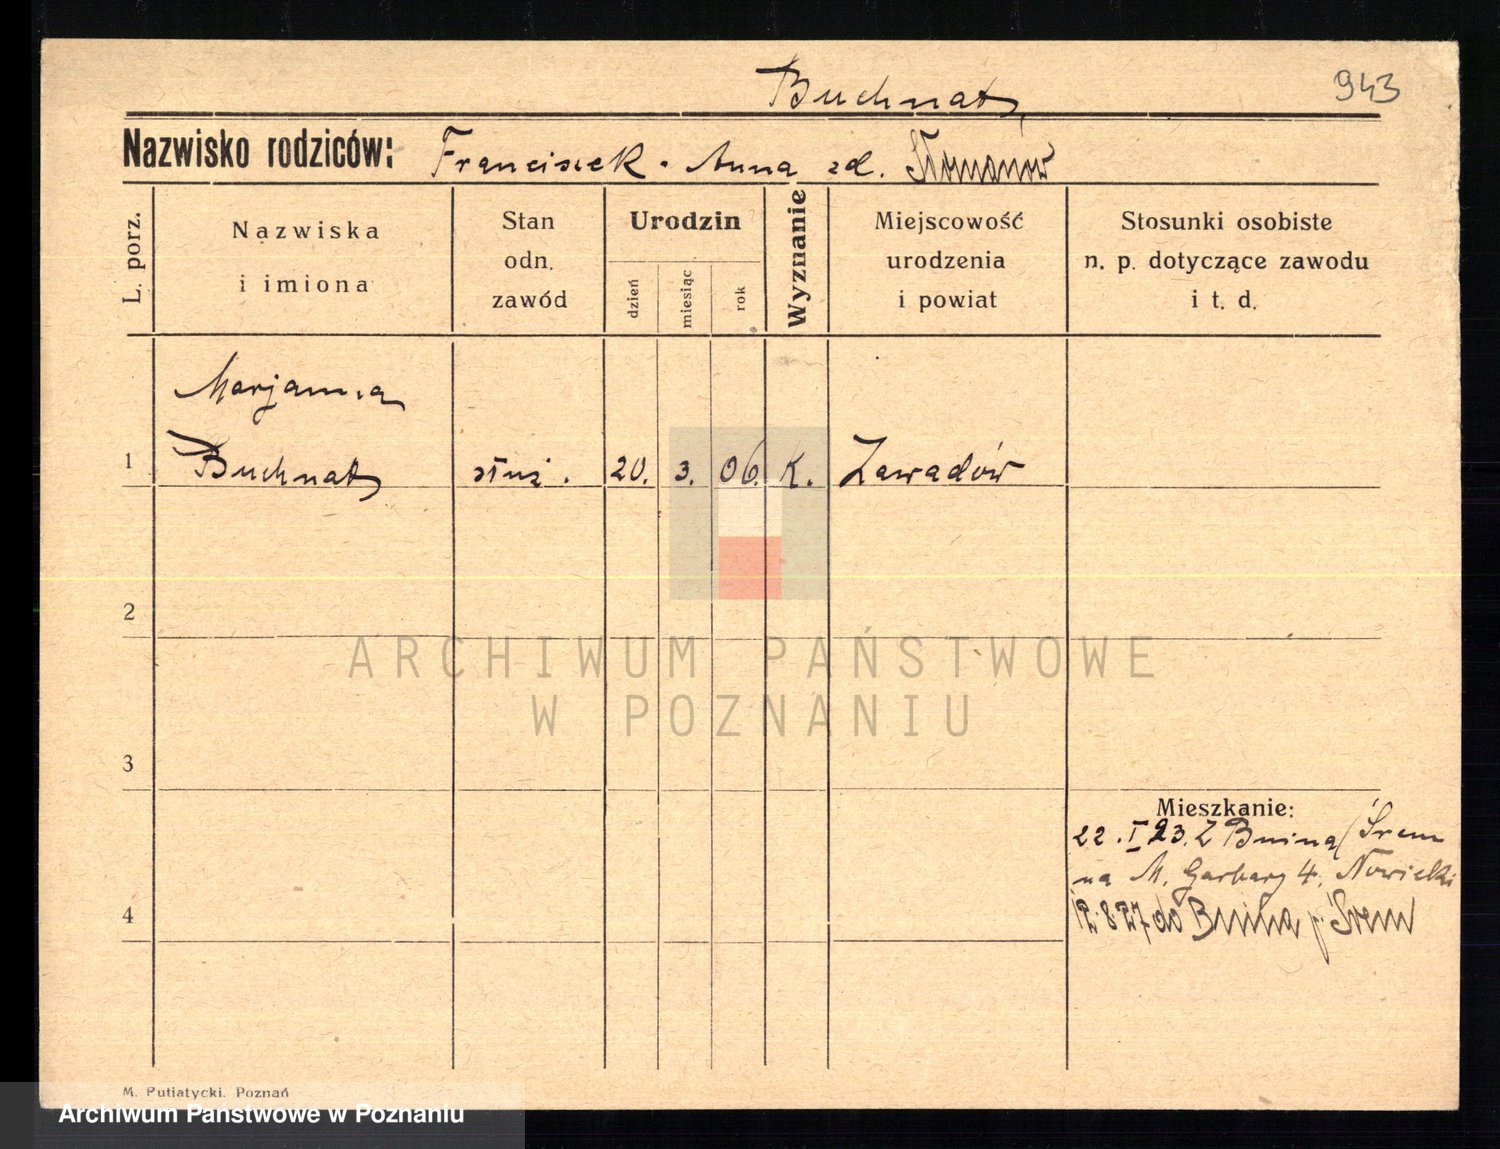 Buchnat
943
Nazwisko rodziców: Franciszek . Anna zd.
L. porz.
Nazwiska
i imiona
Stan
odn.
zawód
Urodzin
dzień
miesiąc
rok
Wyznanie
Miejscowość
urodzenia
i powiat
Stosunki osobiste
n. p. dotyczące zawodu
i t. d.
Marjanna
1 Buchnat służ. 20. 3. 06. K. Zawadów
2
ARCHIWUM PAŃSTWOWE
W POZNANIU
3
Mieszkanie:
22. I 23. Z Bnina / Śrem
na M. Garbary 4. Nowicki
4
12.8 27 do Bnina p. Śrem
M. Putiatycki. Poznań
Archiwum Państwowe w Poznaniu